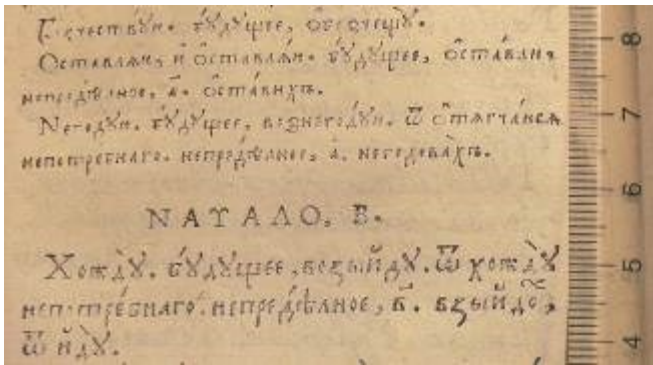 будꙋщее,
Оставлѧю, и҆ ѡ҆ставлѧю. бꙋ́дꙋщее, ѡ҆ста́влю,
непредѣ́лное, а҃. ѡ҆ста́вихъ.
Негодꙋю. бꙋ́дꙋщее, вознегодꙋю. ѿ ѡ҆тѧгча́юсѧ
непотребнаго. непредѣ́лное, а҃. негодова́хъ.
НАЧАЛО, В.
Хождꙋ̀. бꙋ́дꙋщее, возыйдꙋ. ѿ хождꙋ̀
непотре́бнаго. непредѣ́лное, в҃. взыйдо́,
ѿ идꙋ̀.
8
7
6
5
4